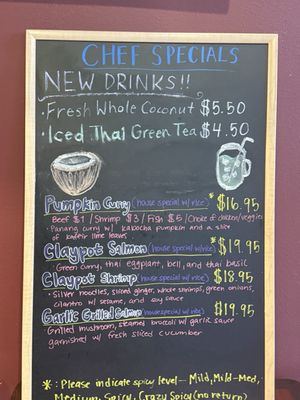 CHEF SPECIALS
NEW DRINKS!!
· Fresh Whole Coconut $5.50
· Iced Thai Green Tea $4.50
Pumpkin Curry (house special w/rice) * $16.95
Beef $1 / Shrimp $3 / Fish $5 / Choice of chicken/veggies
- Panang curry w/ kabocha pumpkin and a slice
of kaffir lime leaves
Claypot Salmon (house special w/rice) * $19.95
- Green curry, thai eggplant, bell, and thai basil
Claypot Shrimp (house special w/rice) $18.95
- Silver noodles, sliced ginger, whole shrimps, green onions,
cilantro w/ sesame, and soy sauce
Garlic Grilled Salmon (house special w/rice) $19.95
- Grilled mushroom, steamed broccoli w/ garlic sauce
garnished w/ fresh sliced cucumber
* : Please indicate spicy level — Mild, Mild-Med,
Medium, Spicy, Crazy Spicy (no return)